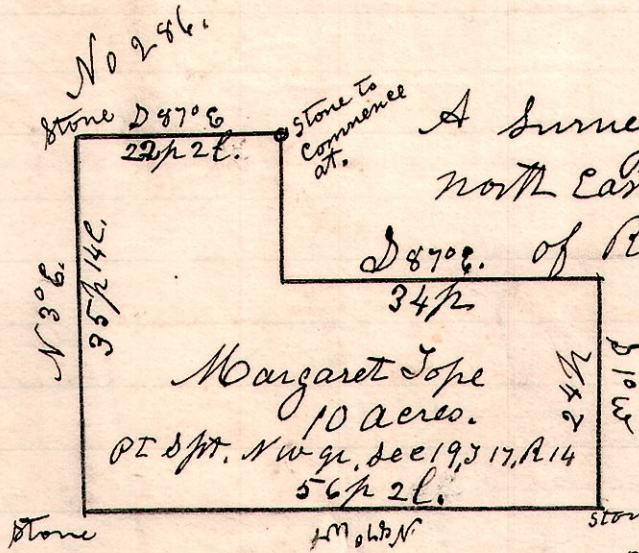 No 286.
Stone S 87° E
22p 2l.
Stone to
Commence
at.
A Surve
north Eas
S 87° E. of R
34p
N 3° E.
35p 14l.
Margaret Tope
10 acres.
Pt Spt. Nw qr, Sec 19, T 17, R 14
56p 2l.
24p
S 1° W
Stone
N 87° W
Ston